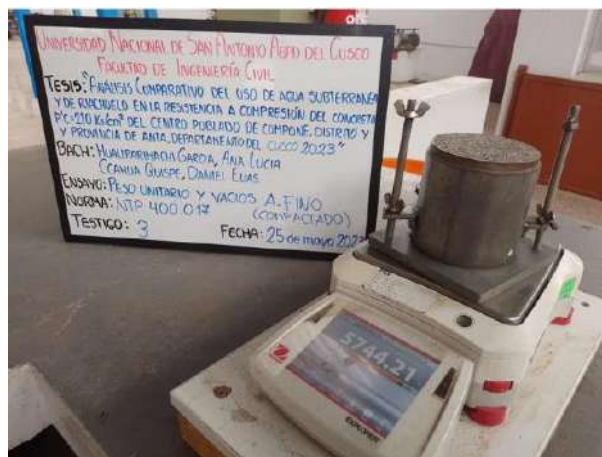 UNIVERSIDAD NACIONAL DE SAN ANTONIO ABAD DEL CUSCO
FACULTAD DE INGENIERÍA CIVIL
TESIS: "ANÁLISIS COMPARATIVO DEL USO DE AGUA SUBTERRANEA
Y DE RIACHUELO EN LA RESISTENCIA A COMPRESIÓN DEL CONCRETO
F'C=210 KG/CM² DEL CENTRO POBLADO DE COMPONE, DISTRITO Y
Y PROVINCIA DE ANTA, DEPARTAMENTO DEL CUSCO 2023"
BACH: HUALLPARIMACHI GARCIA, ANA LUCIA
CCAHUA QUISPE, DANIEL ELIAS
ENSAYO: PESO UNITARIO Y VACIOS A. FINO
(COMPACTADO)
NORMA: NTP 400 017
TESTIGO: 3 FECHA: 25 de mayo 2023
5744.21
EXPLORER